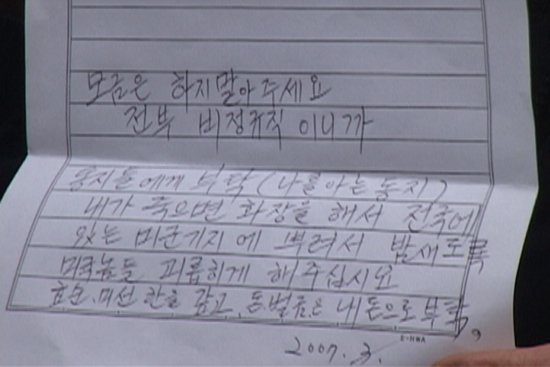 모금은 하지말아 주세요
전부 비정규직 이니까
동지들에게 부탁(나를아는동지)
내가 죽으면 화장을 해서 전국에
있는 미군기지에 뿌려서 밤새도록
미국놈들 괴롭히게 해주십시요
효순.미선 한을 갚고, 돈벌금은 내돈으로부탁.
2007. 3.